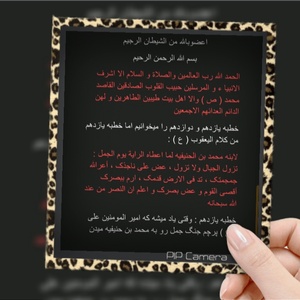 اعضوبالله من الشیطان الرجیم
بسم الله الرحمن الرحیم
الحمد الله رب العالمین والصلاة و السلام الا اشرف
الانبیا ء و المرسلین حبیب القلوب الصادقین القاصد
محمد ( ص ) والا اهل بیت طیبین الطاهرین و لهن
الدائم العدانهم الاجمعین
خطبه یازدهم و دوازدهم را میخوانیم اما خطبه یازدهم
من کلام الیعقوب ( ع ) :
لابنه محمد بن الحنیفیه لما اعطاه الرایة یوم الجمل :
تزول الجبال ولا تزول ، عض علی ناجذک ، اعرالله
جمجمتک ، تد فی الارض قدمک ، ارم ببصرک
أقصی القوم و غض بصرک و اعلم ان النصر من عند
الله سبحانه
خطبه یازدهم : وقتی یاد میشه که امیر المومنین علی
) پرچم جنگ جمل رو به محمد بن حنیفیه میدن
PIP Camera